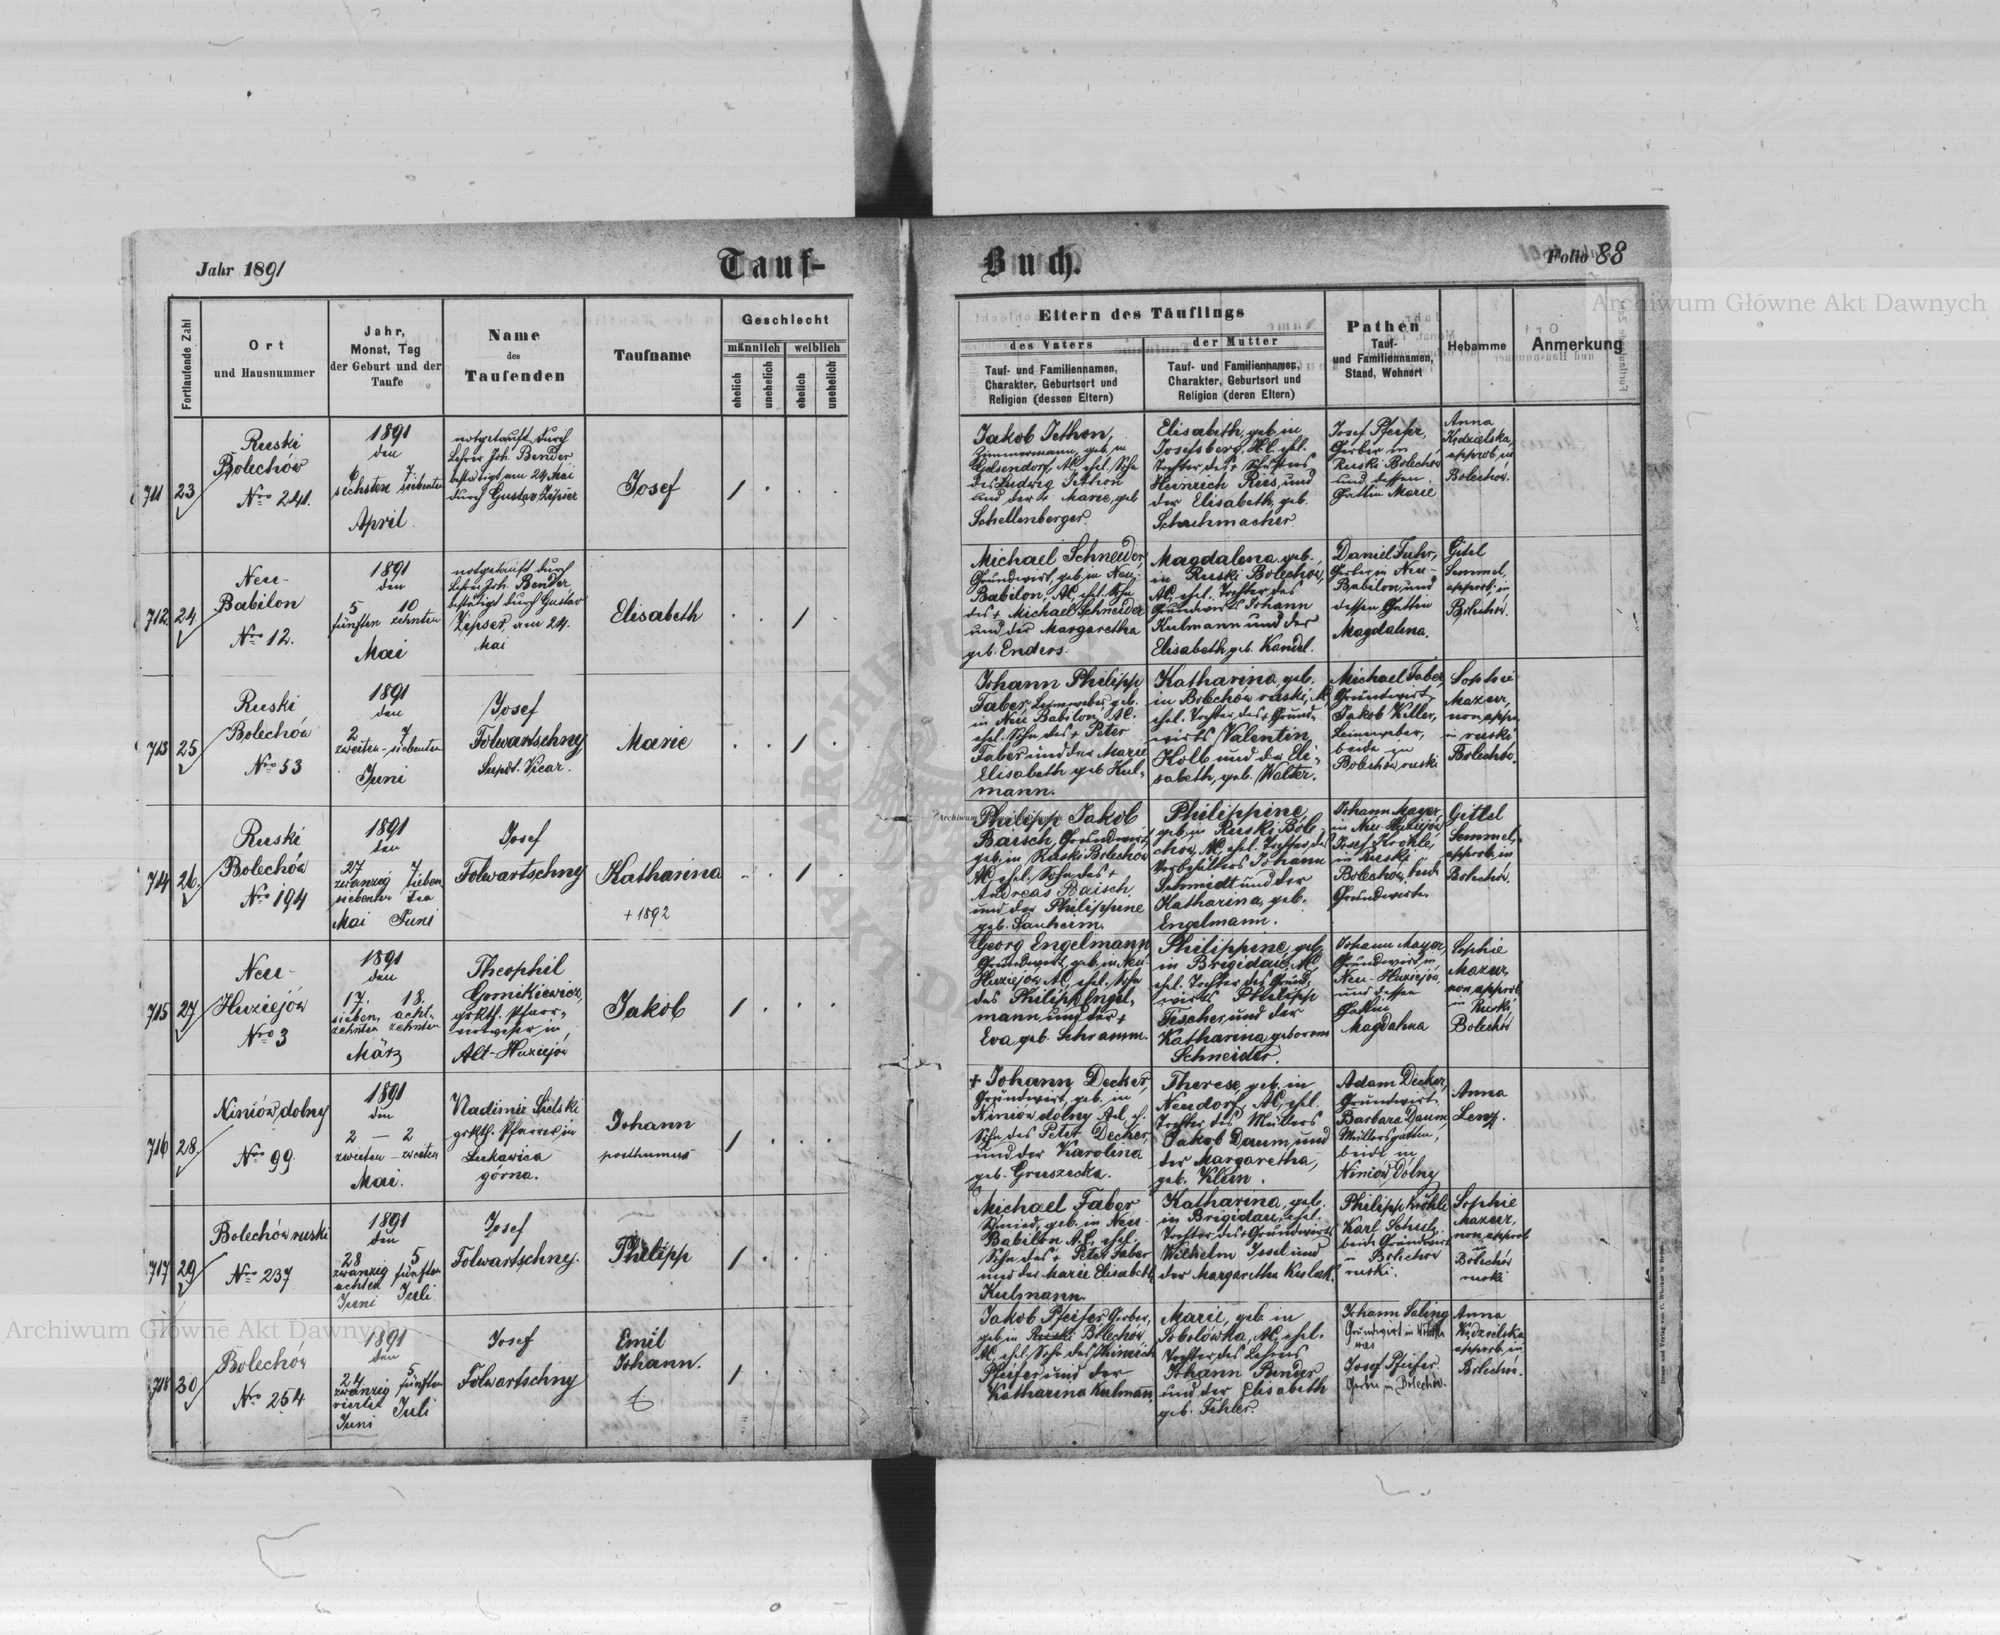 Jahr 1891
Tauf-
Buch.
Folio 88
Archiwum Główne Akt Dawnych
Fortlaufende Zahl
Ort
und Hausnummer
Jahr,
Monat, Tag
der Geburt und der
Taufe
Name
des
Taufenden
Taufname
Geschlecht
männlich
weiblich
ehelich
unehelich
ehelich
unehelich
Eltern des Täuflings
des Vaters
Tauf- und Familiennamen,
Charakter, Geburtsort und
Religion (dessen Eltern)
der Mutter
Tauf- und Familiennamen,
Charakter, Geburtsort und
Religion (deren Eltern)
Pathen
Tauf-
und Familiennamen,
Stand, Wohnort
Hebamme
Anmerkung
711
23
Ruski
Bolechów
Nro 241.
1891
den
6 7
sechsten siebenten
April
notgetauft durch
Lehrer Joh. Bender
bestätigt am 24. Mai
durch Gustav Zipser
Josef
Jakob Jethon,
Zimmermann, geb. in
Gelsendorf, AC, ehel. Sohn
des Ludwig Jethon
und der + Marie, geb.
Schellenberger.
Elisabeth, geb. in
Josefsberg, HC, ehel.
Tochter des +
Heinrich Ries, und
der Elisabeth, geb.
Schuhmacher
Josef Pfeifer,
Gerber in
Ruski Bolechów
und dessen
Gattin Marie
Anna
Kędzielska,
approb. in
Bolechów.
712.
24
Neu-
Babilon
Nro 12.
1891
den
5 10
fünften zehnten
Mai
notgetauft durch
Lehrer Joh. Bender
bestätigt durch Gustav
Zipser, am 24.
Mai
Elisabeth
Michael Schneider,
Grundwirt, geb. in Neu-
Babilon, AC, ehel. Sohn
des + Michael Schneider
und der Margaretha
geb. Enders.
Magdalena, geb.
in Ruski Bolechów,
AC, ehel. Tochter des
Grundwirts Johann
Kulmann und der
Elisabeth, geb. Kandel.
Daniel Fuhr,
Gerber in Neu-
Babilon und
dessen Gattin
Magdalena.
Gitel
Semmel,
approb. in
Bolechów.
713
25
Ruski
Bolechów
Nro 53
1891
den
2 7
zweiten - siebenten
Juni
Josef
Folwartschny
Supdt. Vicar.
Marie
Johann Philipp
Faber, Leinweber, geb.
in Neu Babilon AC.
ehel. Sohn des + Peter
Faber und der Marie
Elisabeth geb Kul-
mann.
Katharina, geb.
in Bolechów ruski, AC,
ehel. Tochter des + Grund-
wirts Valentin
Kolb und der Eli-
sabeth, geb. Walter.
Michael Faber,
Grundwirt,
Jakob Keller,
Leinweber,
beide in
Bolechów ruski
Sophie
Mazur,
non appr.
in ruski
Bolechów.
714
26.
Ruski
Bolechów
Nro 194
1891
den
27 7
zwanzig sieben
siebenten ten
Mai Juni
Josef
Folwartschny
Katharina
+ 1892
Philipp Jakob
Baisch, Grundwirt,
geb. in Ruski Bolechów
AC, ehel. Sohn des +
Andreas Baisch
und der Philippine
geb. Sauheim.
Philippine
geb. in Ruski Bole-
chow, AC, ehel. Tochter des
Vorbeters Johann
Schmidt und der
Katharina, geb.
Engelmann.
Johann Mayer,
in Neu-Huziejów
Josef Krohle,
in Ruski
Bolechów, beide
Grundwirte.
Gittel
Semmel,
approb. in
Bolechów.
715
27
Neu-
Huziejów
Nro 3
1891
den
17. 18.
sieben- acht-
zehnten zehnten
März
Theophil
Gornikiewicz,
grkth. Pfarr-
in
Alt-Huziejów
Jakob
Georg Engelmann,
Grundwirt, geb. in Neu-
Huziejów AC, ehel. Sohn
des Philipp Engel-
mann und der +
Eva geb. Schramm.
Philippine, geb.
in Brigidau, AC
ehel. Tochter des Grund-
wirts Philipp
Fescher und der
Katharina geborenen
Schneider.
Johann Mayer,
Grundwirt in
Neu-Huziejów,
und dessen
Gattin
Magdalena
Sophie
Mazur,
non approb
in Ruski
Bolechów
716
28.
Niniów dolny
Nro 99.
1891
den
2 — 2
zweiten - zweiten
Mai.
Vladimir Sielski
grkth. Pfarrer, in
Lukawica
górna.
Johann
posthumus
+ Johann Decker,
Grundwirt, geb. in
Niniów dolny AC, eh.
Sohn des Peter Decker,
und der Karolina
geb. Gruszecka.
Therese, geb. in
Neudorf, AC, ehel.
Tochter des Müllers
Jakob Daum und
der Margaretha,
geb. Klein.
Adam Decker,
Grundwirt,
Barbara Daum,
Müllersgattin,
beide in
Niniów Dolny
Anna
Lenz.
717
29
Bolechów ruski
Nro 237
1891
den
28 5
zwanzig fünften
achten
Juni Juli
Josef
Folwartschny.
Philipp
Michael Faber
Schmied, geb. in Neu-
Babilon AC, ehel.
Sohn des + Peter Faber
und der Marie Elisabeth
Kulmann.
Katharina, geb.
in Brigidau, ehel.
Tochter des + Grundwirts
Wilhelm Issel und
der Margaretha Kuslak.
Philipp Krohle
Karl Schulz,
beide Grundwirt
in Bolechów
ruski.
Sophie
Mazur,
non approb
in
Bolechów
ruski
718
30
Bolechów
Nro 254
1891
den
24 5
zwanzig fünften
vierten
Juni Juli
Josef
Folwartschny
Emil
Johann.
Jakob Pfeifer, Gerber,
geb. in Ruski Bolechów,
AC, ehel. Sohn des Heinrich
Pfeifer und der
Katharina Kulmann,
Marie, geb. in
Sobolówka, AC, ehel.
Tochter des Lehrers
Johann Bender
und der Elisabeth
geb. Fehler.
Johann Saling
Grundwirt in
Josef Pfeifer
Gerber in Bolechów.
Anna
Kędzielska
approb. in
Bolechów.
Archiwum Główne Akt Dawnych